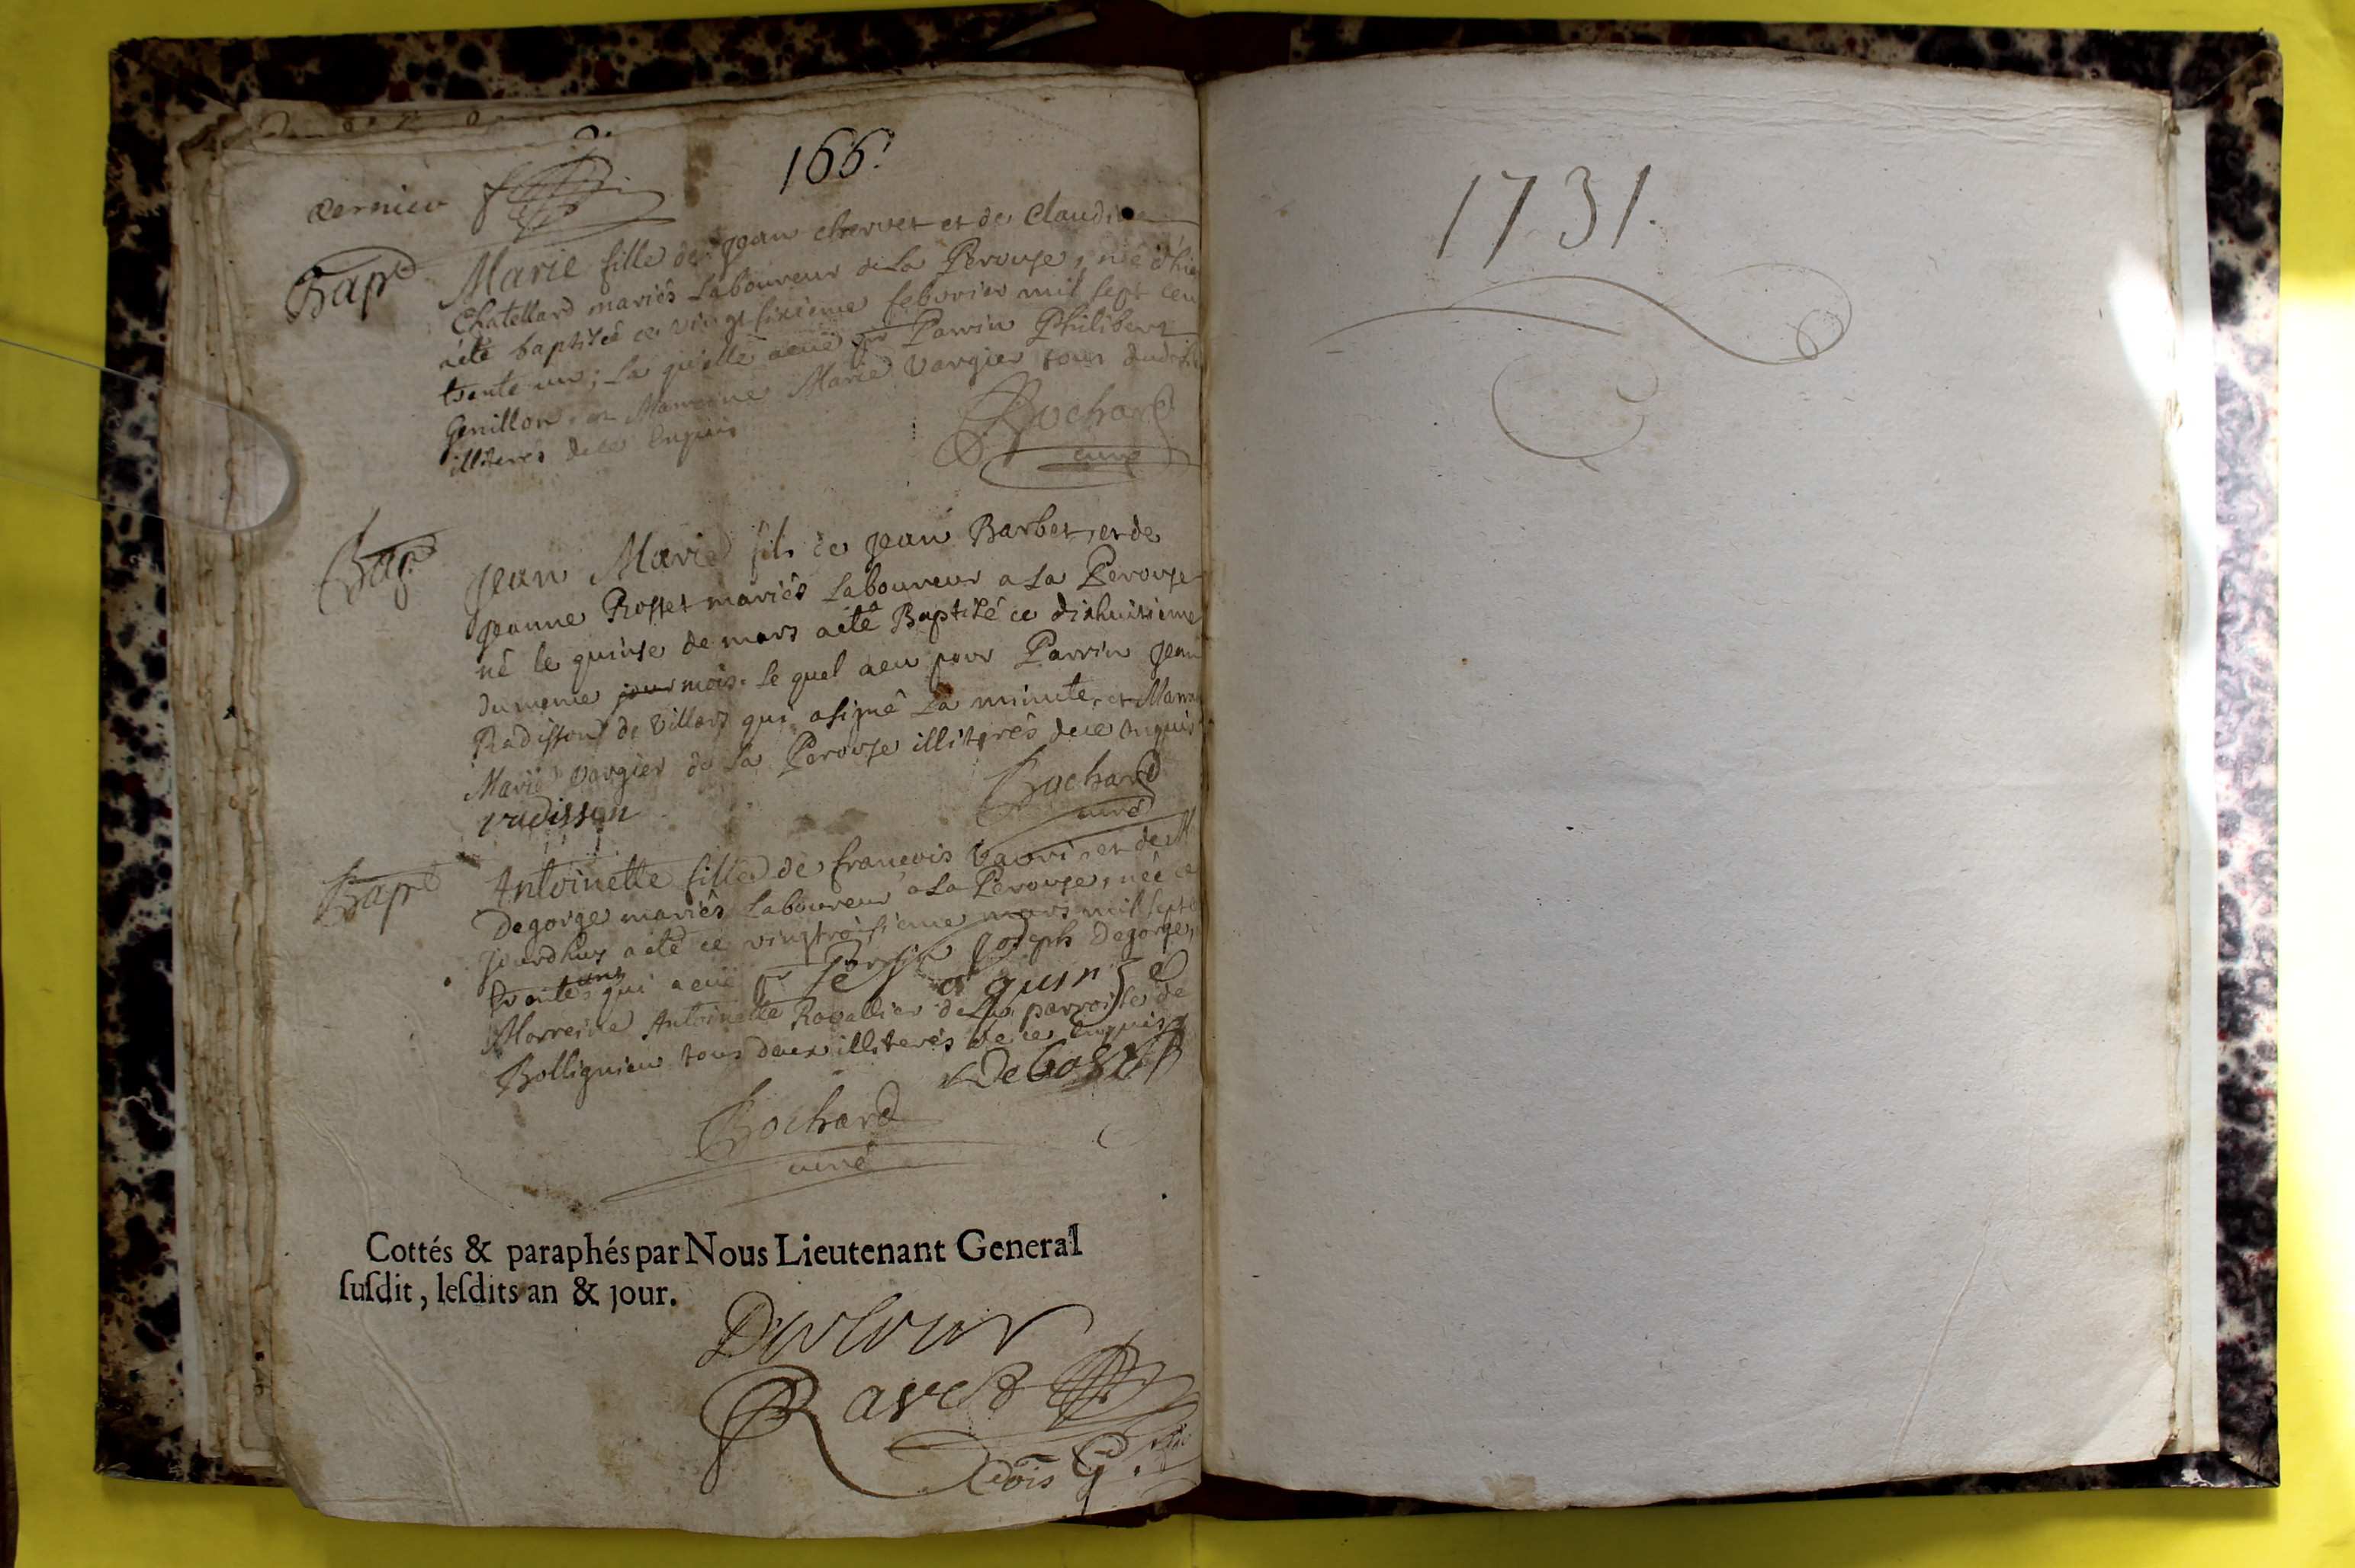 166.
dernier
Bapt Marie fille de Jean chervet et de Claudine
Chatellard mariés Laboureur de La Perouse, née d'hie
a été baptisée ce vingt sixieme febvrier mil sept cen
trente un; La quelle a eüe pr Parrin Philibert
Genillon et Marreine Marie Vargier tous dudit
illiterés de ce Enquis
Bochard
curé
Bapt Jean Marie fils de Jean Barbet et de
Jeanne Rosset mariés Laboureur a La Perouse
né le quinse de mars a été Baptisé ce dixhuitieme
du meme jour mois. le quel a eu pour Parrin Jean
Radisson de Villars qui a signé La minute, et Marra
Marie Vargier de La Perouse illiterés de ce Enquis
radisson
Bochard
curé
Bapt Antoinette fille de francois Vauri et de M
Degorge mariés Laboureur a La Perouse, née ce
jourdhuy a été ce vingtroisieme mars mil sept
trente une qui a eüe pr Joseph Degorge,
Marreine Antoinette Ravallier de La parroisse de
Bollignieu tous deux illiterés de ce Enquis
Bochard
curé
Cottés & paraphés par Nous Lieutenant General
ſuſdit, leſdits an & jour.
Ravet
1731.